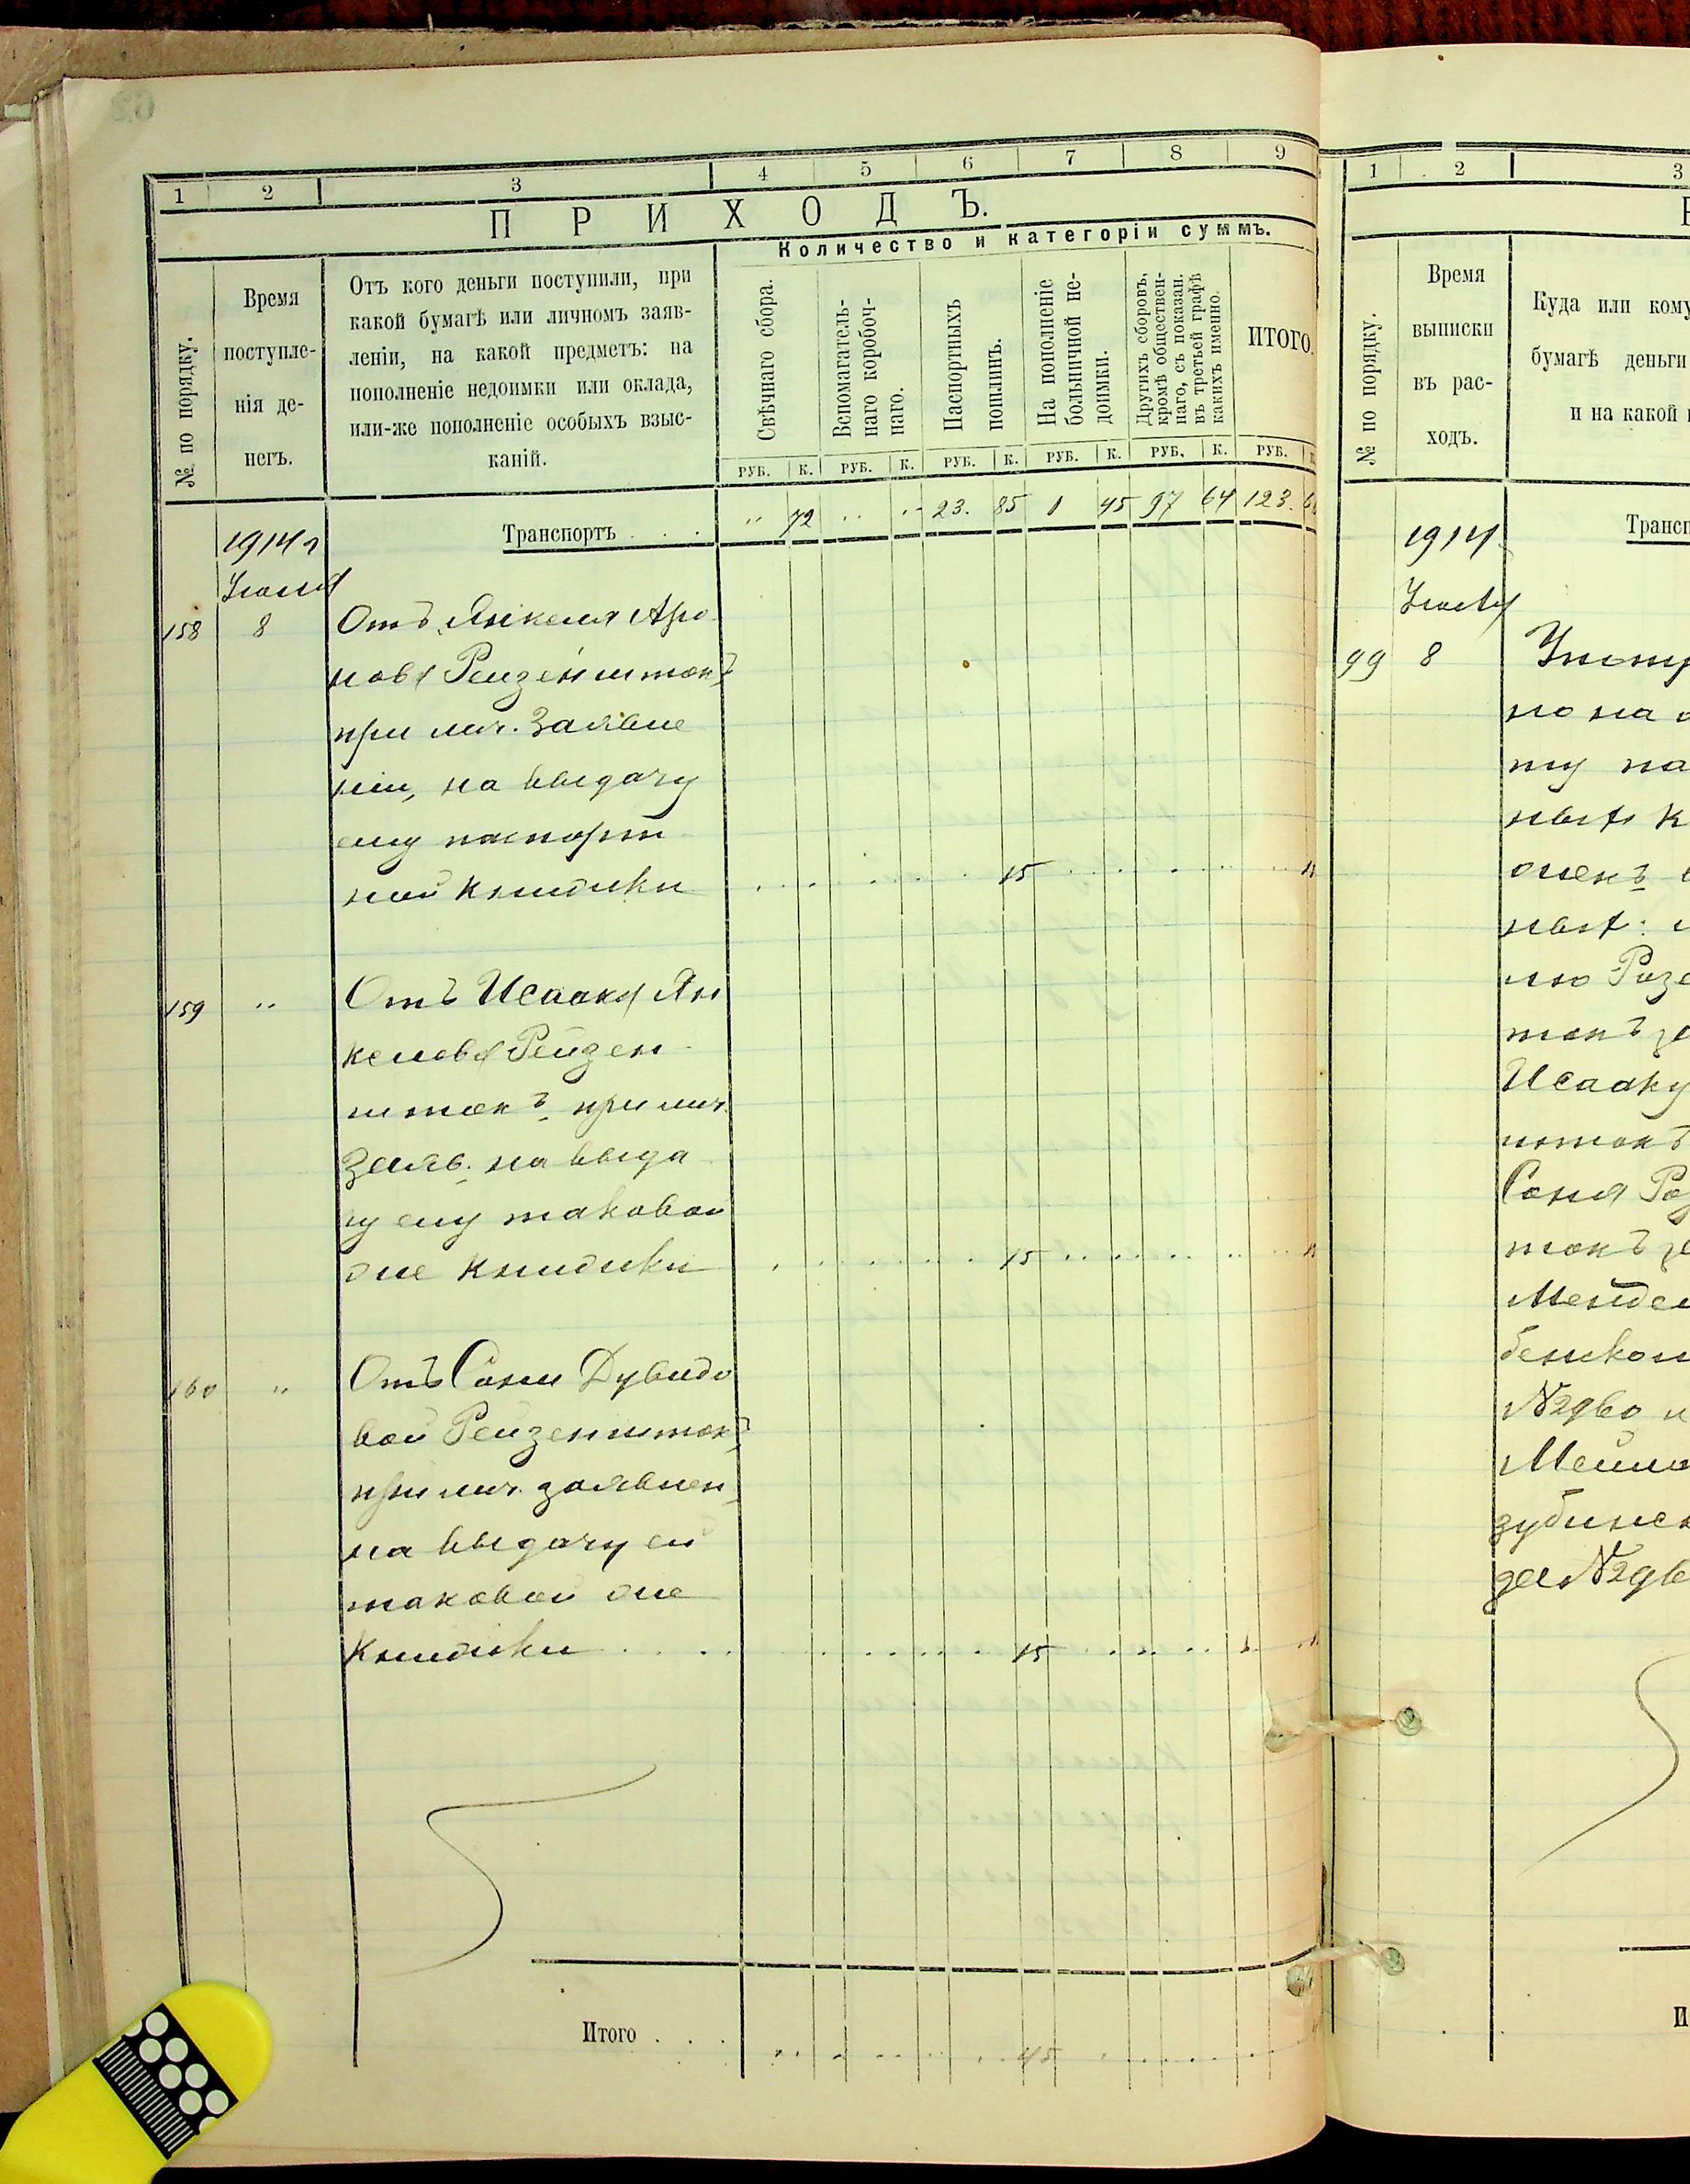 1 2 3 4 5 6 7 8 9
ПРИХОДЪ.
Количество и категоріи суммъ.
№ по порядку.
Время
поступле-
нія де-
негъ.
Отъ кого деньги поступили, при
какой бумагѣ или личномъ заяв-
леніи, на какой предметъ: на
пополненіе недоимки или оклада,
или-же пополненіе особыхъ взыс-
каній.
Свѣчнаго сбора.
Вспомагатель-
наго коробоч-
наго.
Паспортныхъ
пошлинъ.
На пополненіе
больничной не-
доимки.
Другихъ сборовъ,
кромѣ обществен-
наго, съ показан.
въ третьей графѣ
какихъ именно.
ИТОГО.
РУБ. К. РУБ. К. РУБ. К. РУБ. К. РУБ. К. РУБ.
Транспортъ . . . " 72 .. .. 23. 85 1 45 97 64 123.
1914 г
Іюля
158 8 Отъ Янкеля Аро
нова Рейзенштокъ
при лич. Заявле
ніи, на выдачу
ему паспорт
ной книжки 15
159 " Отъ Исаака Ян
келова Рейзен
штокъ, при лич.
Заяв. на выда
чу ему таковой
же книжки 15
160 " Отъ Сони Дувидо
вой Рейзенштокъ,
при лич. заявлен.
на выдачу ей
таковой же
книжки 15
Итого . . . 45
1 2 3
№ по порядку.
Время
выписки
въ рас-
ходъ.
Куда или кому
бумагѣ деньги
и на какой
Трансп
1914
Іюля
99 8
но на
ту па
ныхъ к
ныхъ:
лю Рызе
токъ
Исааку
штокъ
Соня Ро
токъ
Мендел